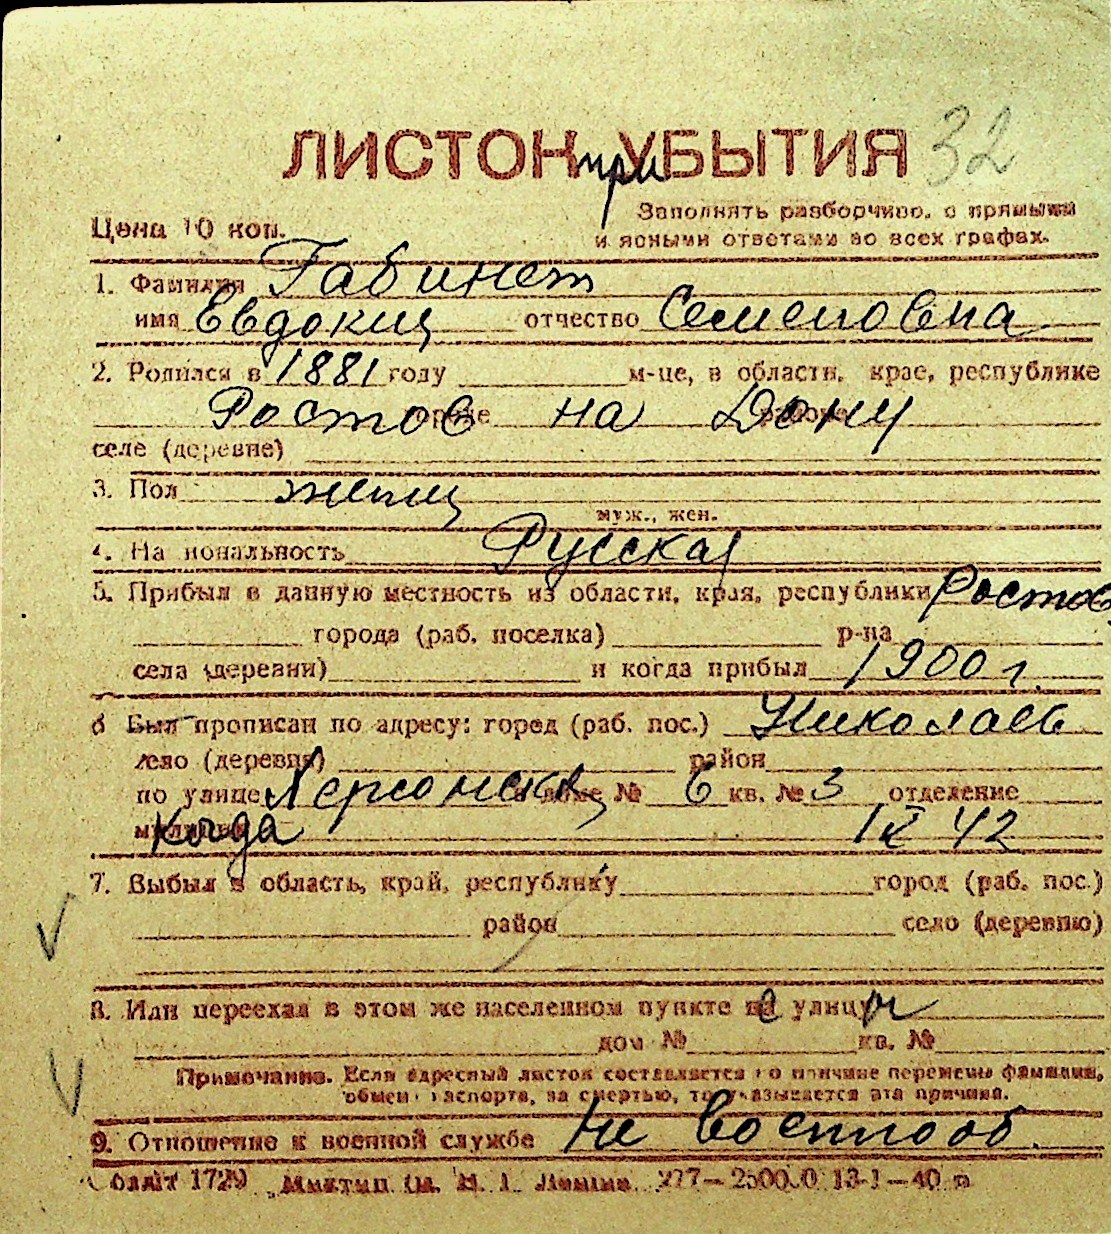 ЛИСТОН при УБЫТИЯ 32
Заполнять разборчиво, с прямыми
Цена 10 коп.
и ясными ответами во всех графах.
1. Фамилия Габинет
имя Евдокия отчество Семеновна
2. Родился в 1881 году м-це, в области, крае, республике
Ростов на Дону
селе (деревне)
3. Пол женщ
муж., жен.
4. Национальность Русская
5. Прибыл в данную местность из области, края, республики Ростов
города (раб. поселка) р-на
села (деревни) и когда прибыл 1900 г.
6 Был прописан по адресу: город (раб. пос.) Николаев
село (деревня) район
по улице Херсонская доме № 6 кв. № 3 отделение
милиции Когда IX 42
7. Выбыл в область, край, республику город (раб. пос.)
район село (деревню)
8. Или переехал в этом же населенном пункте на улицу
дом № кв. №
Примечание. Если адресный листок составляется по причине перемены фамилии,
обмена паспорта, за смертью, то указывается эта причина.
9. Отношение к военной службе не военнооб.
1729 277—2500.0 13-1—40 г